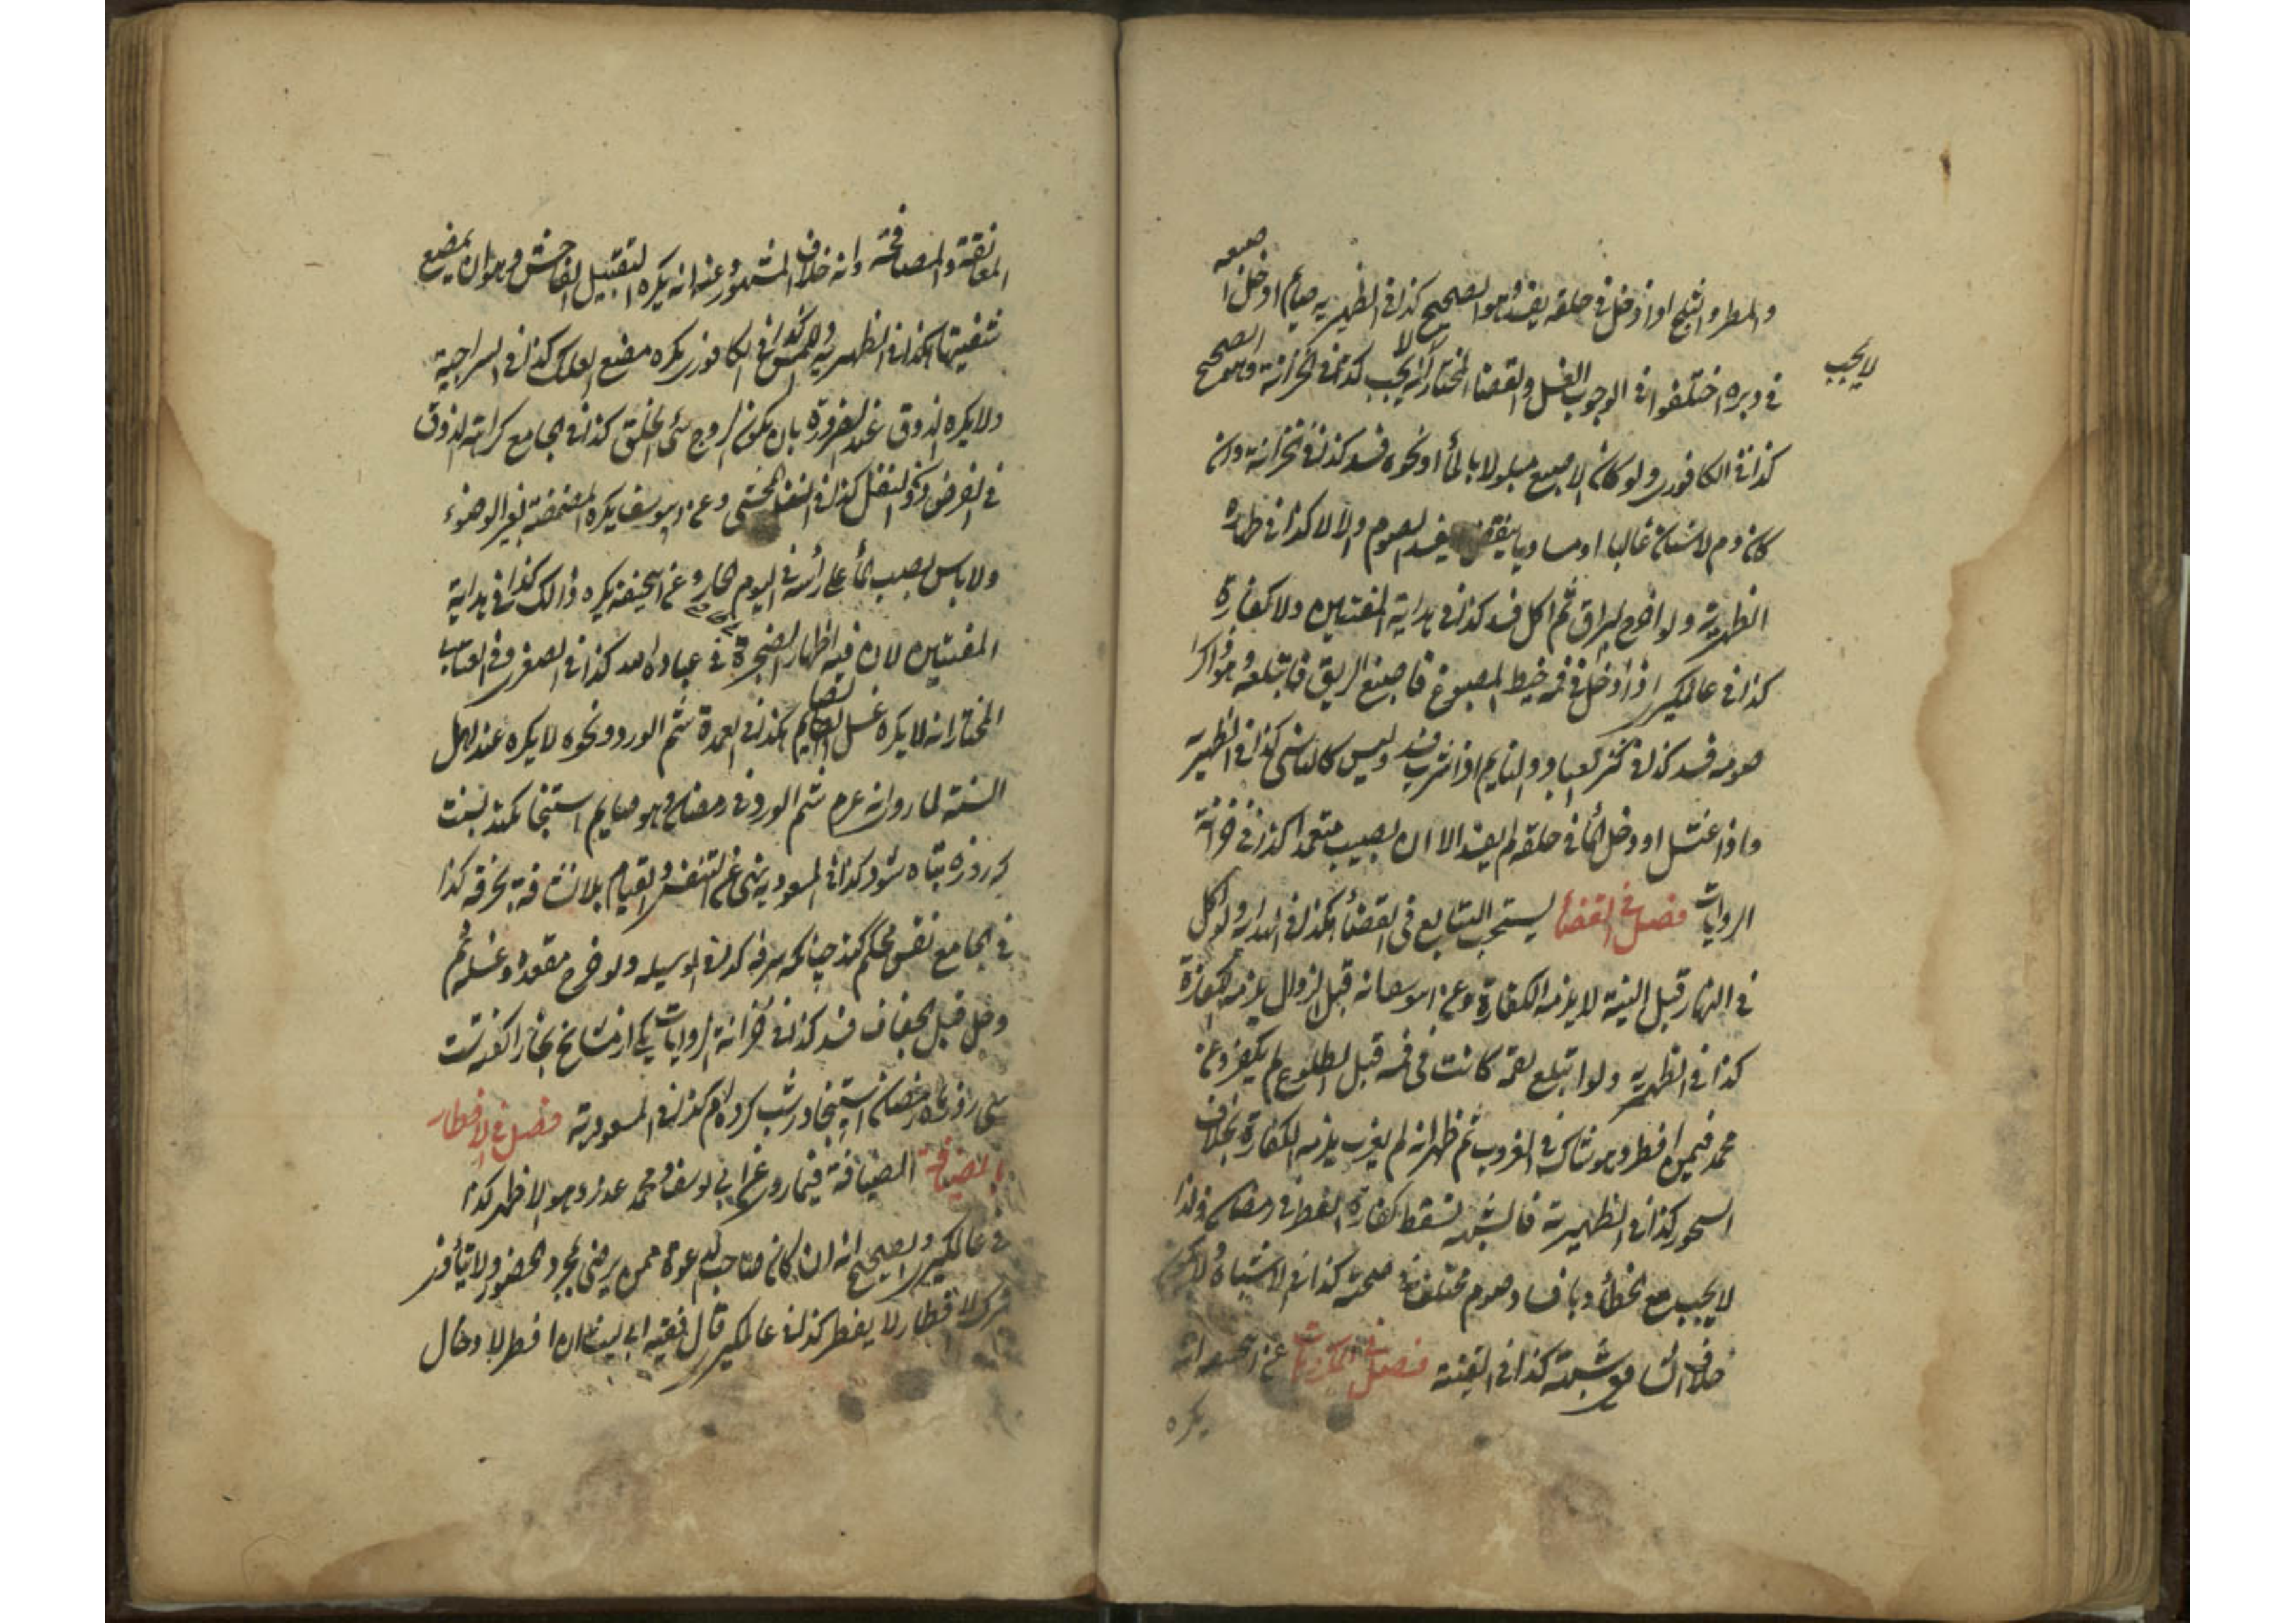 والمطر والثلج اذا دخل في حلقه يفسد وهو الصحيح كذا في الظهيرية صايم ادخل اصبعه
في دبره اختلفوا في الوجوب الغسل والقضا المختار انه لا يجب كذا في الخزانة وهو الصحيح
لا يجب
كذا في الكافوري ولو كان الاصبع مبلولا بالمأ او نحوه فسد كذا في خزانة وان
كان دم لاسنان غالبا او مساويا يفسد الصوم والا لا كذا في
الظهرية ولو اخرج البزاق ثم اكل فسد كذا في بداية المفتين ولا كفارة
كذا في عالمكيرى اذا ادخل في فمه خيط المصبوغ فاصبغ الريق فابتلعه وهو ذاكر
صومه فسد كذا في كنز العباد والنايم اذا شرب فسد وليس كالناسي كذا في الظهيرية
واذا غتسل او دخل المأ في حلقه لم يفسد الا ان يصيب متعمدا كذا في خزانة
الروايات فصل في القضأ يستحب التتابع في القضأ هكذا في الهداية ولو اكل
في النهار قبل النية لا يلزمه الكفارة وعن ابو يوسف انه قبل الزوال يلزمه الكفارة
كذا في الظهرية ولو ابتلع لقمة كانت في فمه قبل الطلوع لم يكفر وعن
محمد فيمن افطر وهو شاك في الغروب ثم ظهر انه لم يغرب يلزمه الكفارة بخلاف
السحور كذا في الظهيرية فالشبهة تسقط كفارة الفطر في رمضان ولذا
لا يجب مع الخطأ وبافساد صوم مختلف في صحته كذا في الاشباه
خلاف الشافعي شبهة كذا في القنية فصل في المكروهات عن انه
يكره
المعانقة والمصافحة وانه خلاف المشهور وعنه انه يكره التقبيل الفاحش وهو ان يمضغ
شفتيها هكذا في الظهرية واللمس كذا في الكافوري يكره مضغ العلك كذا في السراجية
ولا يكره الذوق عند الضرورة بان يكون الزوج سئ الخلق كذا في الجامع كراهة الذوق
في الفرض دون النفل كذا في المحتبى وعن ابو يوسف يكره المضمضة بغير الوضوء
ولا باس بصب المأ على رأسه في اليوم الحار وعن ابي حنيفة يكره ذالك كذا في بداية
المفتين لان فيه اظهار الضجرة في عبادة الله كذا في الصغرى وفي العتاب
المختار انه لا يكره غسل الصايم هكذا في العمدة شم الورد ونحوه لا يكره عند اهل
السنة لما روى انه عرم شم الورد في رمضان وهو صايم استنجا بكند نسبت
كه روزه تباه شود كذا في المسعوديه نهى عن التنفس والقيام بلا نشافة بخرقة كذا
في الجامع نفس محكم كند چنانكه سرفه كذا في الوسيله ولو خرج مقعده وغسله ثم
دخل قبل الجفاف فسد كذا في خزانة الروايات يكى از مشايخ بخارا كفته ست
سى روز ماه رمضان استنجا در شب كرده ام كذا في المسعودية فصل في الافطار
بالضيافة الضيافة فيما روى عن ابي يوسف ومحمد عذر وهو الاظهر كذا
في عالمكيرى والصحيح انه ان كان صاحب الدعوة ممن يرضى بمجرد الحضور ولا يتأذى
بترك الافطار لا يفطر كذا في عالمكيرى قال فقيه ابى ليث ان افطر لادخال